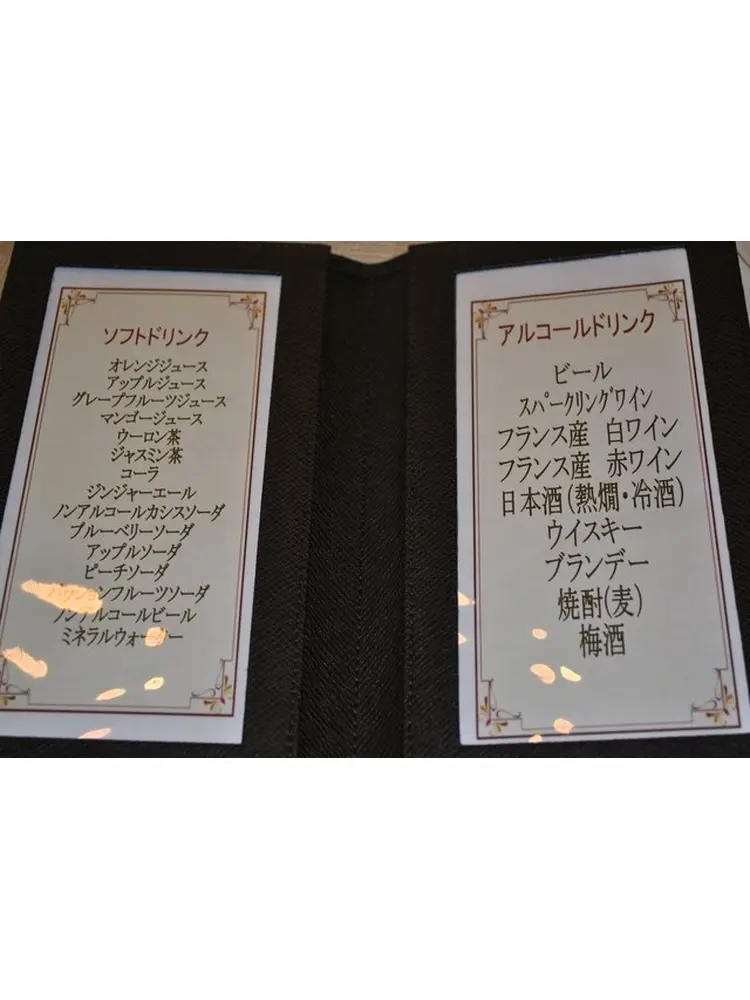 ソフトドリンク
オレンジジュース
アップルジュース
グレープフルーツジュース
マンゴージュース
ウーロン茶
ジャスミン茶
コーラ
ジンジャーエール
ノンアルコールカシスソーダ
ブルーベリーソーダ
アップルソーダ
ピーチソーダ
パッションフルーツソーダ
ノンアルコールビール
ミネラルウォーター
アルコールドリンク
ビール
スパークリングワイン
フランス産 白ワイン
フランス産 赤ワイン
日本酒(熱燗・冷酒)
ウイスキー
ブランデー
焼酎(麦)
梅酒